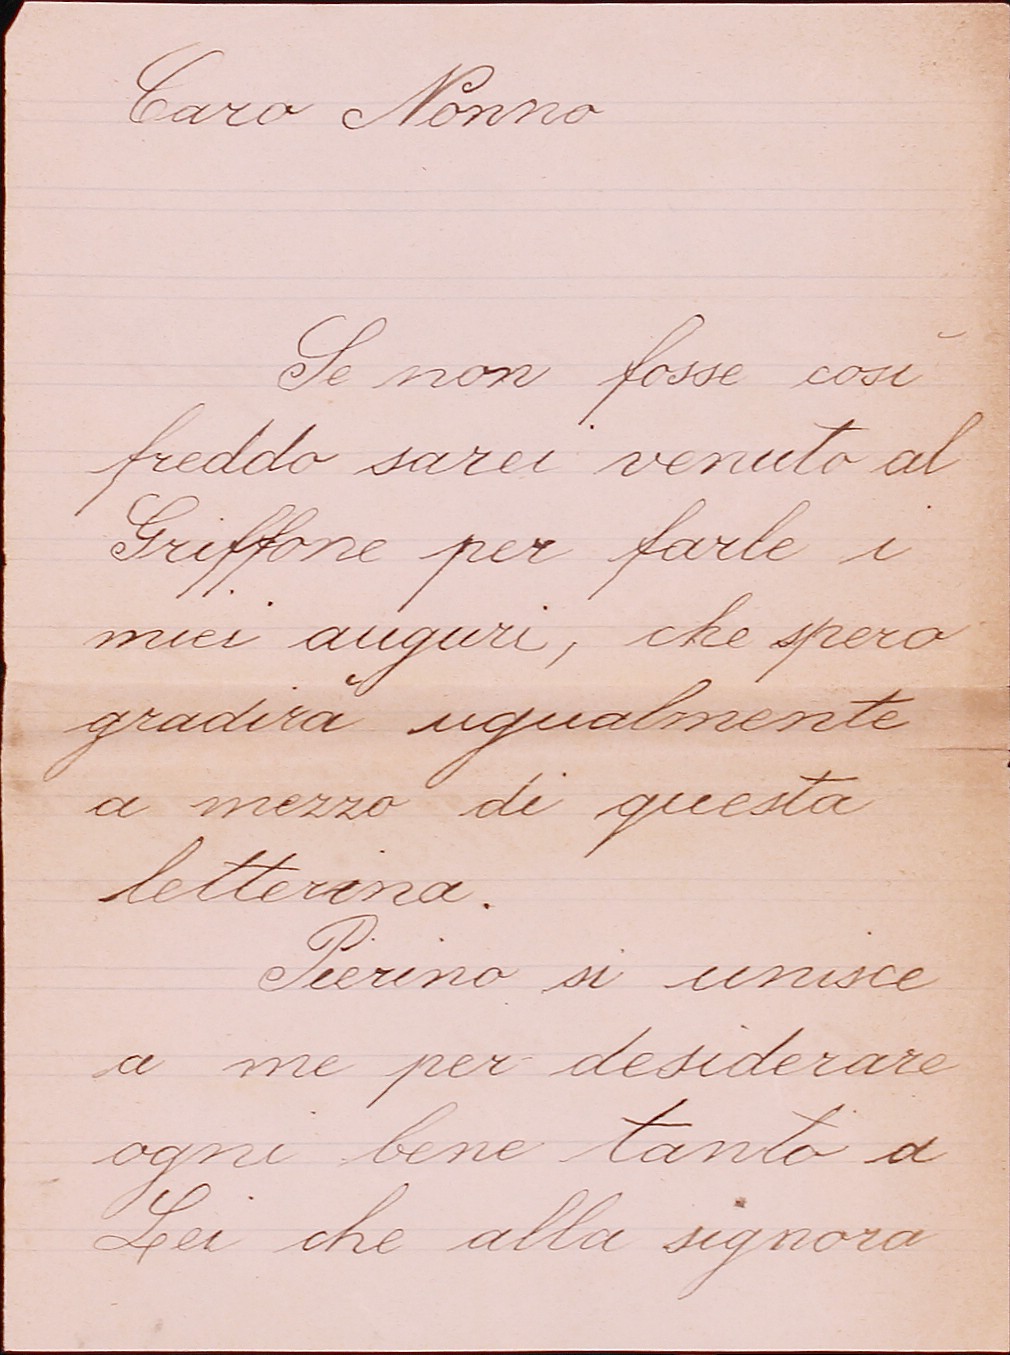 Caro Nonno
Se non fosse così
freddo sarei venuto al
Griffone per farle i
miei auguri, che spero
gradirà ugualmente
a mezzo di questa
letterina.
Pierino si unisce
a me per desiderare
ogni bene tanto a
Lei che alla signora